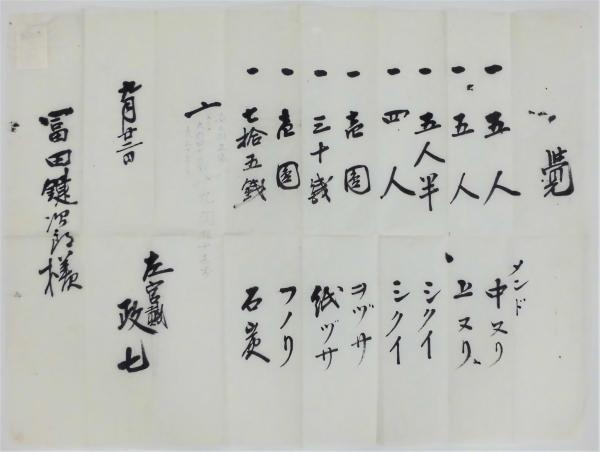 覚
一 五人 メンド 中ヌリ
一 五人 上ヌリ
一 五人半 シクイ
一 四人 シクイ
一 壱圓 ヲヅサ
一 三十銭 紙ヅサ
一 壱圓 フノリ
一 七拾五銭 石炭
〆
九月廿三日
左官職 政七
冨田鍵次郎様